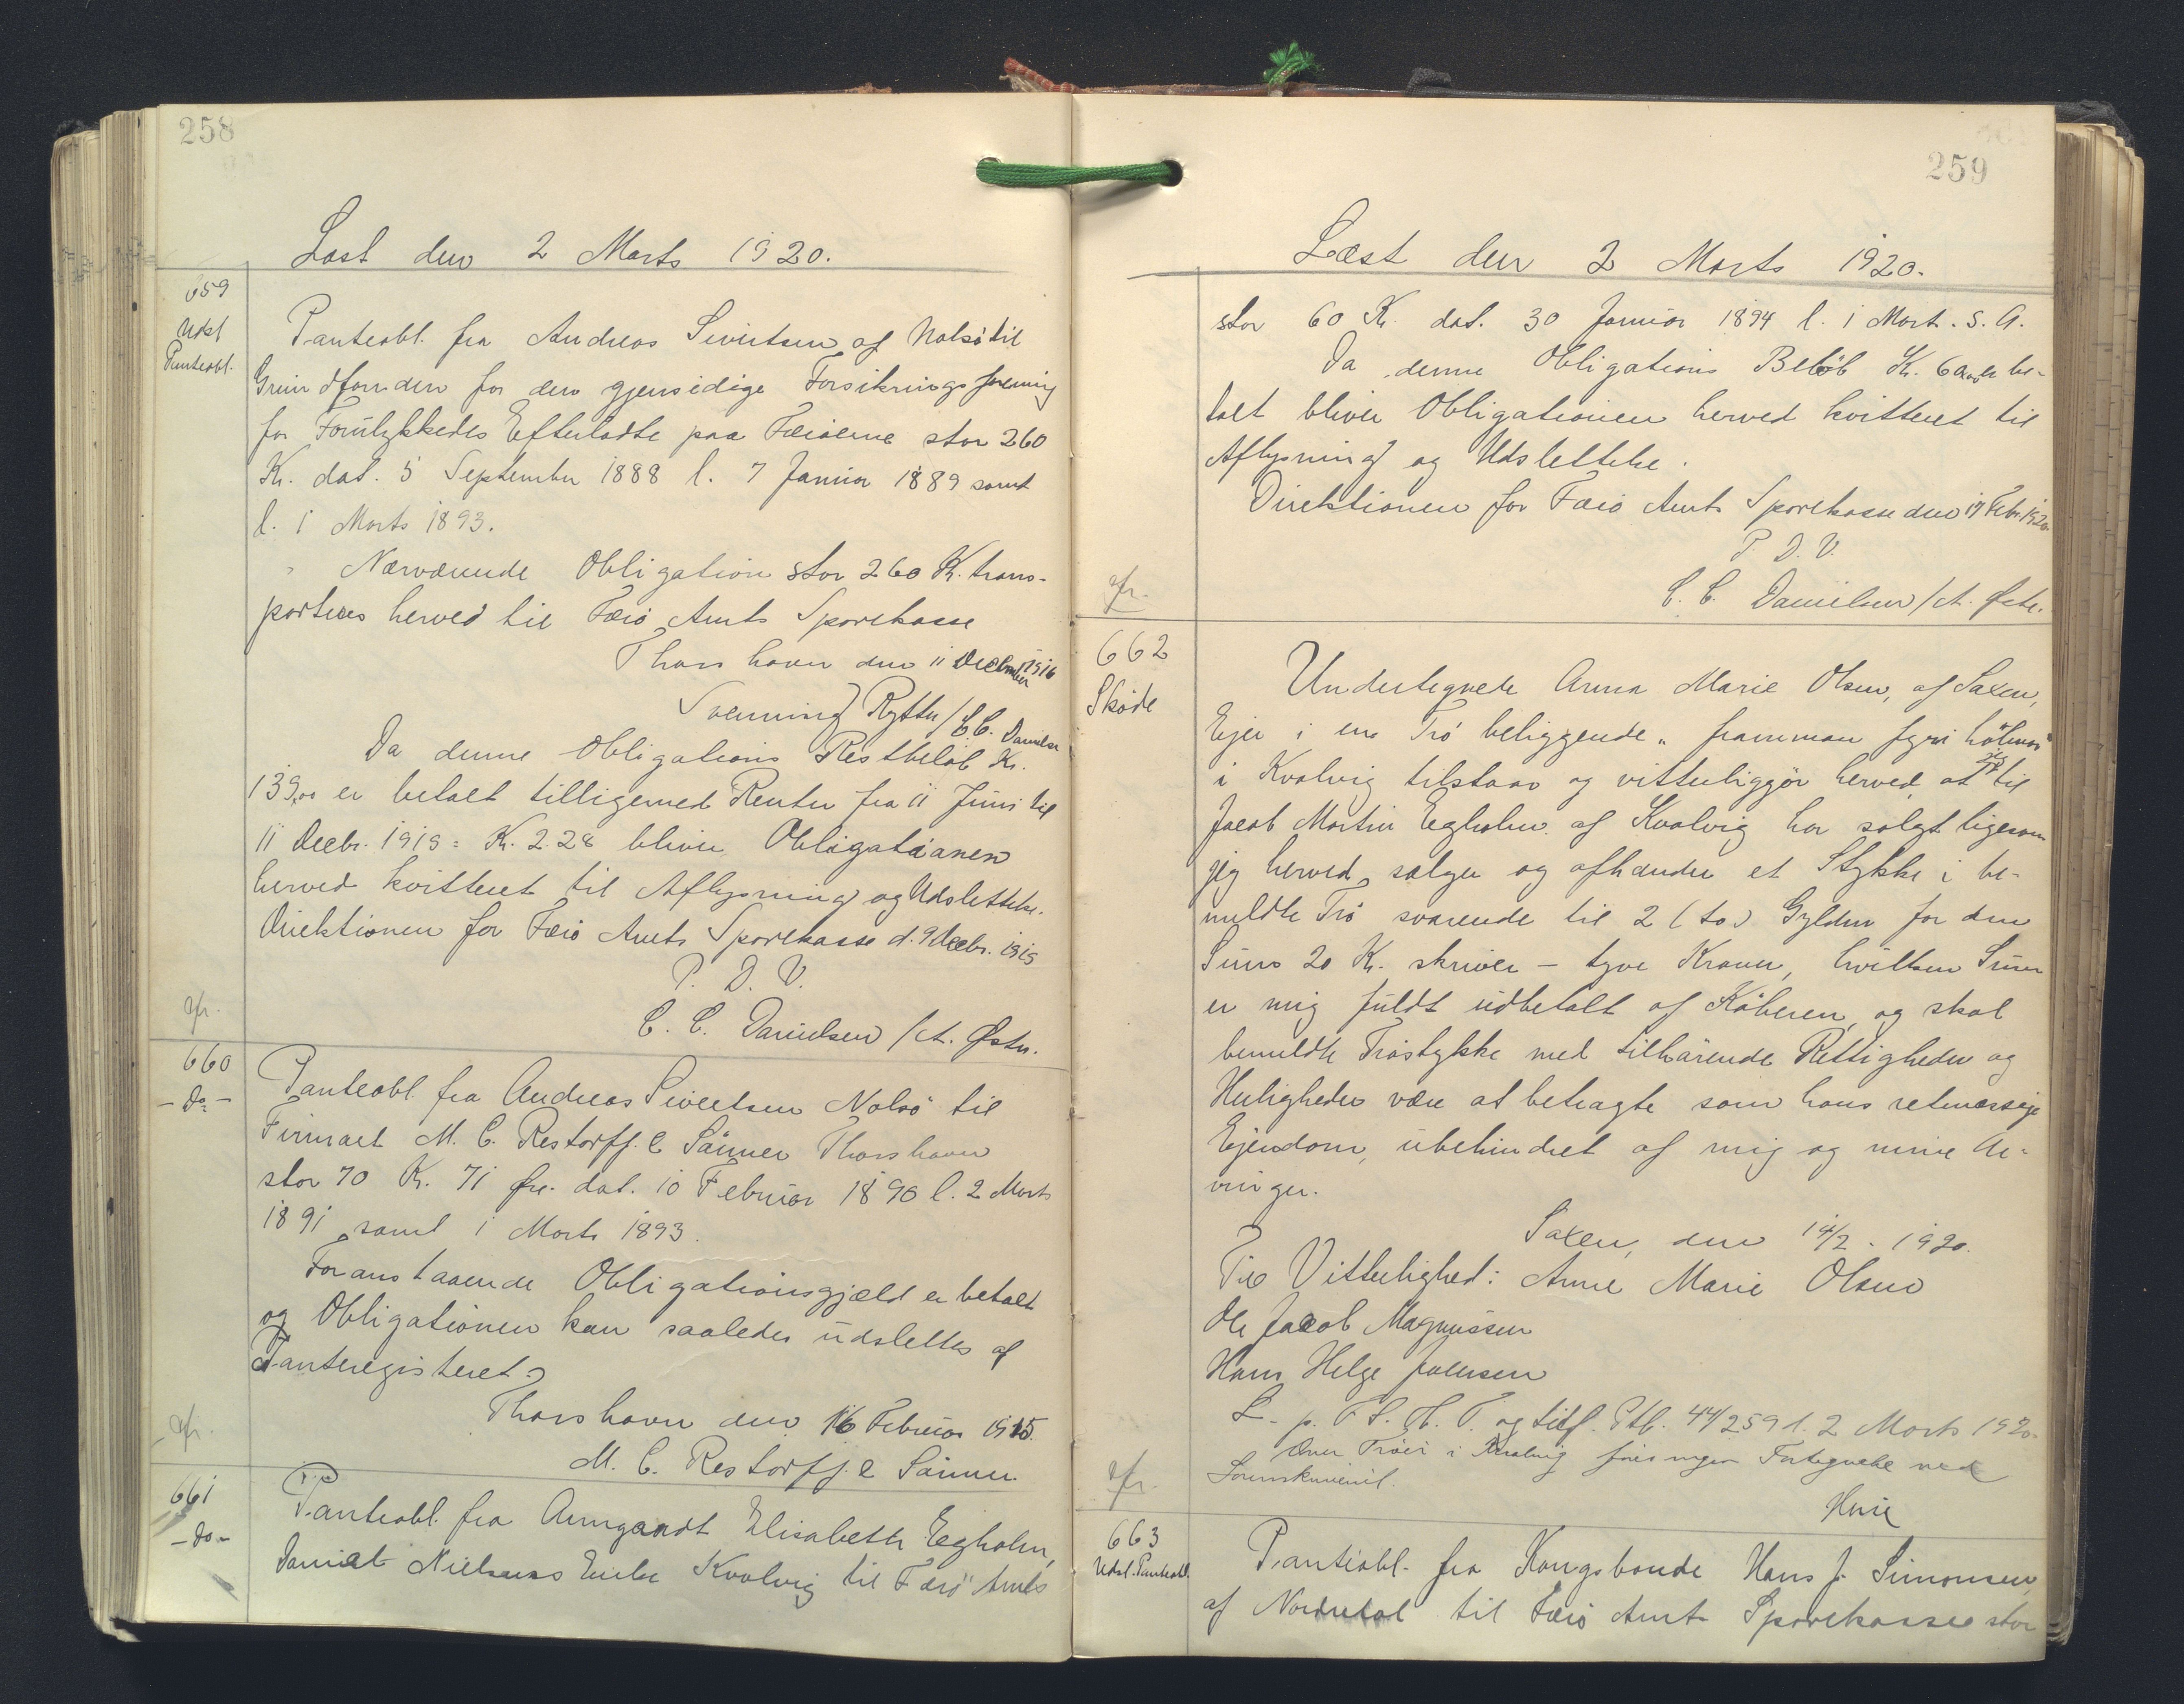 258
Læst den 2 Marts 1920.
659
Udsl
Panteobl.
Panteobl. fra Andreas Sivertsen af Nolsö til
Grundfonden for den gjensidige Forsikringsforening
for Forulykkedes Efterladte paa Færöerne stor 260
Kr. dat. 5 September 1888 l. 7 Januar 1889 samt
l. 1 Marts 1893.
Nærværende Obligation stor 260 Kr. trans-
porteres herved til Færö Amts Sparekasse
Thorshavn den 11 December 1916
Svenning Rytter / C.C. Danielsen
Da denne Obligations Restbelöb Kr.
139,00 er betalt tilligemed Renter fra 11 Juni til
11 Decbr. 1919 = Kr. 2.28 bliver Obligationen
herved kvitteret til Aflysning og Udslettelse.
Direktionen for Færö Amts Sparekasse d. 9 Decbr. 1919
P. D. V.
C. C. Danielsen / A. Østr.
afr.
660
- Do -
Panteobl. fra Andreas Sivertsen Nolsö til
Firmaet M. C. Restorff & Sönner Thorshavn
stor 70 Kr. 71 Øre dat. 10 Februar 1890 l. 2 Marts
1891 samt 1 Marts 1893.
Foranstaaende Obligationsgjæld er betalt
og Obligationen kan saaledes udslettes af
Panteregisteret.
Thorshavn den 16 Februar 1915.
M. C. Restorff & Sönner.
afr.
661
- Do -
Panteobl. fra Armgardt Elisabeth Egholm,
Daniel Nielsens Enke Kvalvig til Færö Amts
259
Læst den 2 Marts 1920.
stor 60 Kr. dat. 30 Januar 1894 l. 1 Mart. S. A.
Da denne Obligations Belöb Kr. 60,00 er be-
talt bliver Obligationen herved kvitteret til
Aflysning og Udslettelse.
Direktionen for Færö Amts Sparekasse den 17 Febr. 1920.
P. D. V.
C. C. Danielsen / A. Østr.
afr.
662
Sköde
Undertegnede Anna Marie Olsen, af Saxen,
Ejer i en Trö beliggende „ framman fyri hölmar"
i Kvalvig tilstaar og vitterliggör herved at jeg til
Jacob Martin Egholm af Kvalvig har solgt ligesom
jeg herved sælger og afhænder et Stykke i be-
meldte Trö svarende til 2 (to) Gylden for den
Sum 20 Kr. skriver - tyve Kroner, hvilken Sum
er mig fuldt udbetalt af Köberen, og skal
bemeldte Tröstykke med tilhörende Rettigheder og
Herligheder være at betragte som hans retmæssige
Ejendom, ubehindret af mig og mine Ar-
vinger.
Saxen, den 14/2. 1920.
Til Vitterlighed: Anne Marie Olsen
Ole Jacob Magnussen
Hans Helge Joensen
L. p. F. S. H. T. og tilf. Ptb. 44/259 l. 2 Marts 1920.
Over Tröer i Kvalvig föres ingen Fortegnelse ved
Sorenskriveriet.
afr.
663
Udsl. Panteobl.
Panteobl. fra Kongsbonde Hans J. Simonsen,
af Norddal til Færö Amts Sparekasse stor